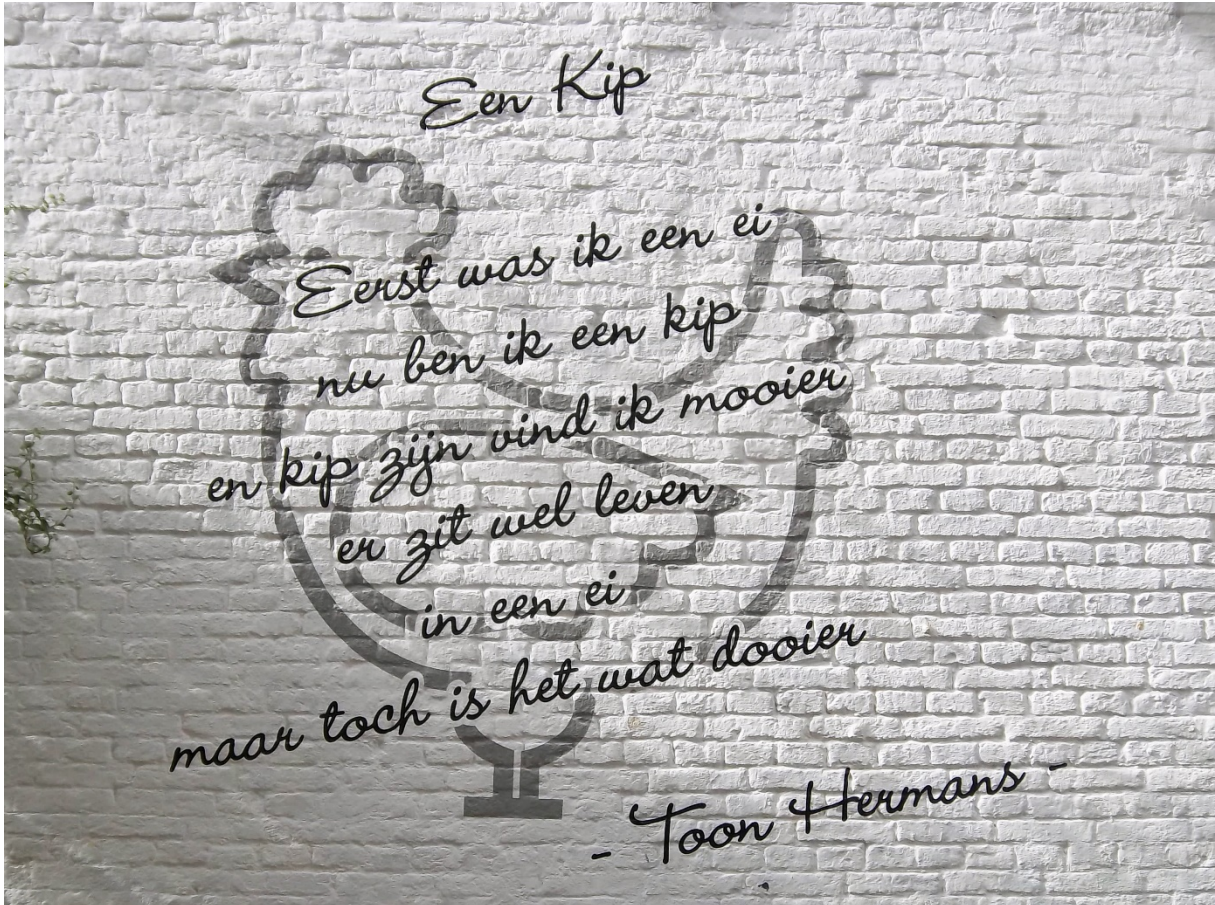 Een Kip
Eerst was ik een ei
nu ben ik een kip
en kip zijn vind ik mooier
er zit wel leven
in een ei
maar toch is het wat dooier
- Toon Hermans -